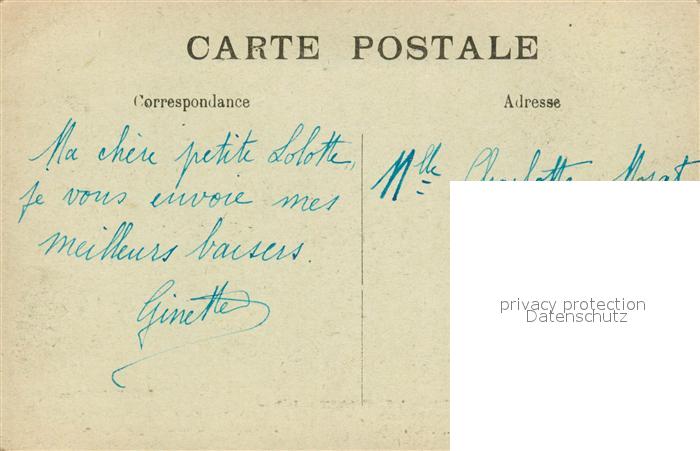 CARTE POSTALE
Correspondance
Adresse
Ma chère petite Lolotte,,
je vous envoie mes
meilleurs baisers.
Ginette
Mlle Charlotte
privacy protection
Datenschutz